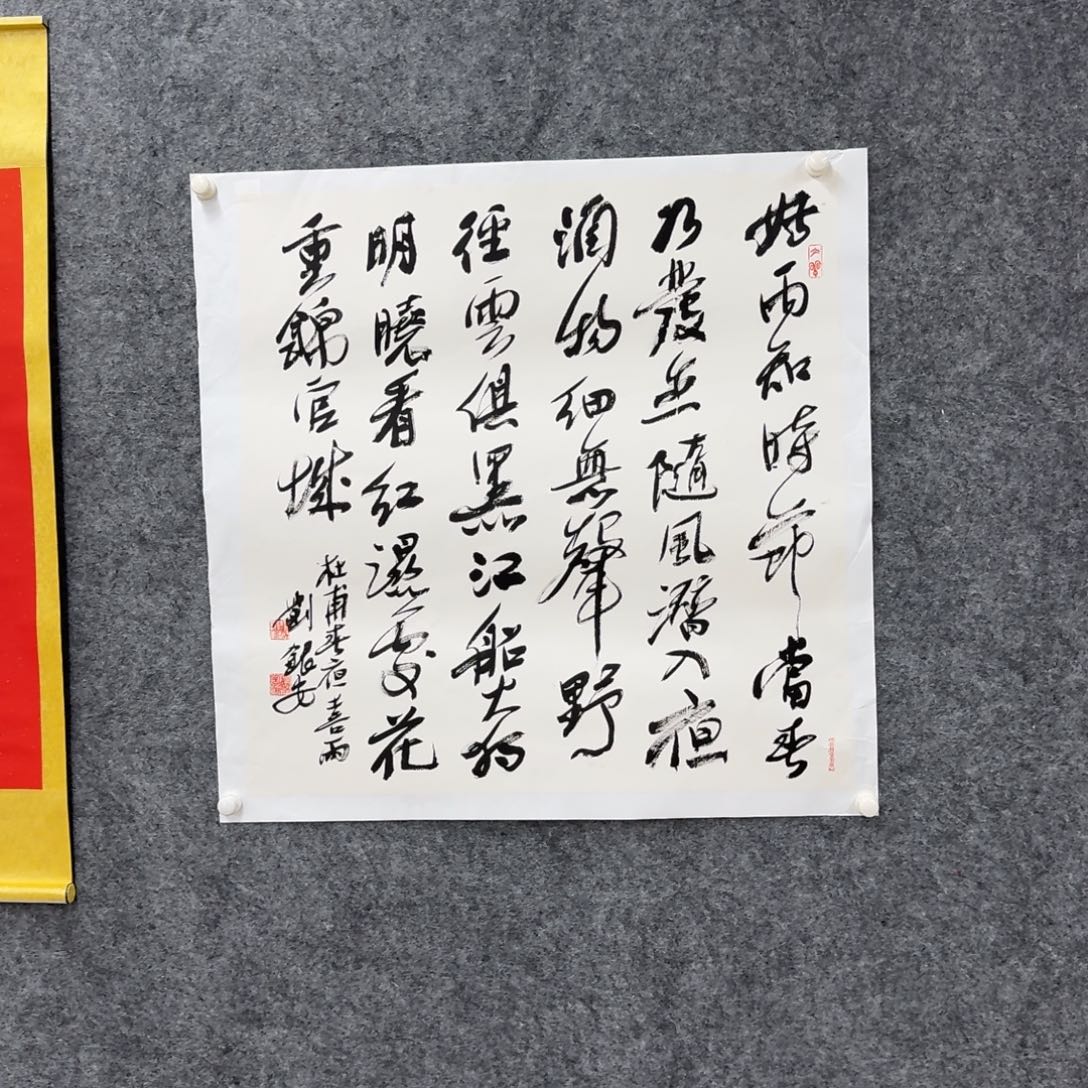 好雨知時節當春
乃發生隨風潛入夜
潤物細無聲野
徑雲俱黑江船火独
明曉看紅濕處花
重錦官城
杜甫春夜喜雨
劉銀安